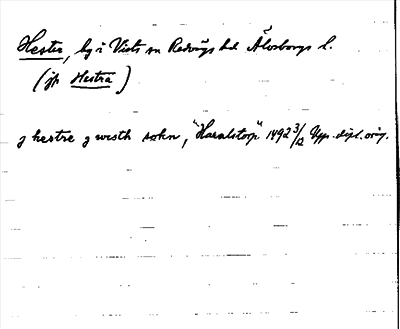 Hester, by i Vists sn Redvägs hd Älvsborgs l.
(jfr Hestra)
j hestre j wisth sokn, "Haralstorp" 1492 3/12 Upps. dipl. orig.